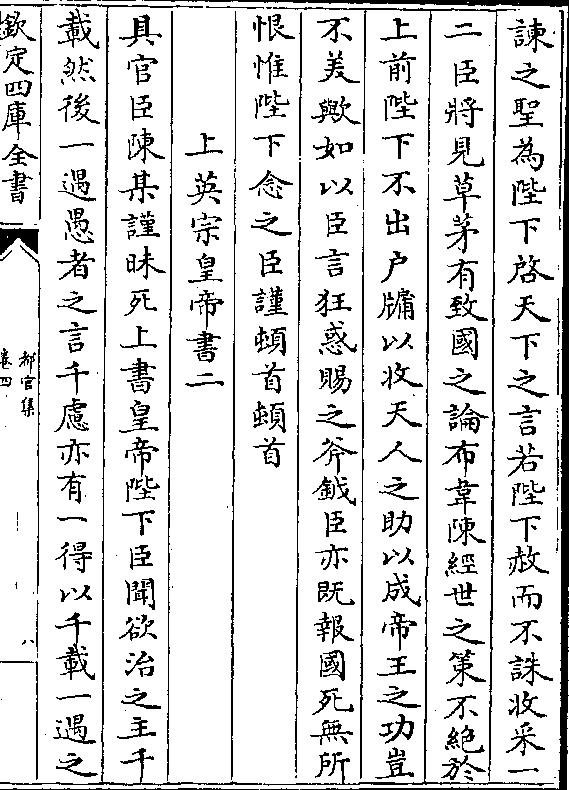 諫之聖為陛下啓天下之言若陛下赦而不誅收采一
二臣將見草茅有致國之論布韋陳經世之策不絶於
上前陛下不出户牖以收天人之助以成帝王之功豈
不美歟如以臣言狂惑賜之斧鉞臣亦既報國死無所
恨惟陛下念之臣謹頓首頓首
上英宗皇帝書二
具官臣陳某謹昧死上書皇帝陛下臣聞欲治之主千
載然後一遇愚者之言千慮亦有一得以千載一遇之
欽定四庫全書
都官集
卷四
八